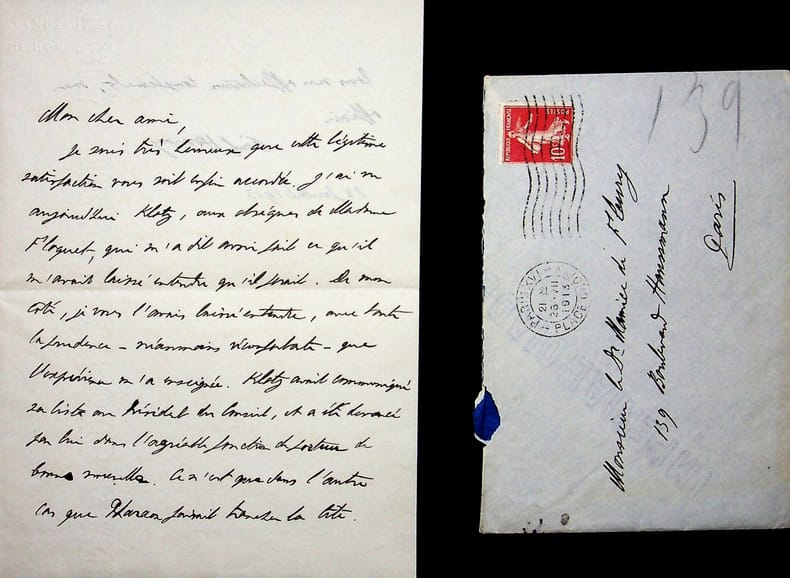 Mon cher ami,
Je suis très heureux que cette légitime
satisfaction vous soit enfin accordée. J'ai vu
aujourd'hui Klotz, aux obsèques de Madame
Floquet, qui m'a dit avoir fait ce qu'il
m'avait laissé entendre qu'il ferait. De mon
côté, je vous l'avais laissé entendre, avec toute
la prudence – néanmoins réconfortante – que
l'expérience m'a enseignée. Klotz avait communiqué
sa liste au Président du Conseil, et a été devancé
par lui dans l'agréable fonction de porteur de
bonne nouvelle. Ce n'est que dans l'autre
cas que Pharaon faisait trancher la tête.
139
POSTES
REPUBLIQUE FRANÇAISE
10c
PARIS XVI
21
23 - VII
1913
PLACE
Monsieur le Dr Maurice de Fleury
139 Boulevard Haussmann
Paris